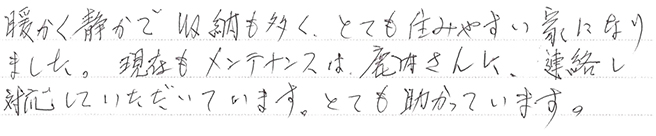 暖かく静かで収納も多く、とても住みやすい家になり
ました。現在もメンテナンスは、鹿浜さんに、連絡し
対応していただいています。とても助かっています。